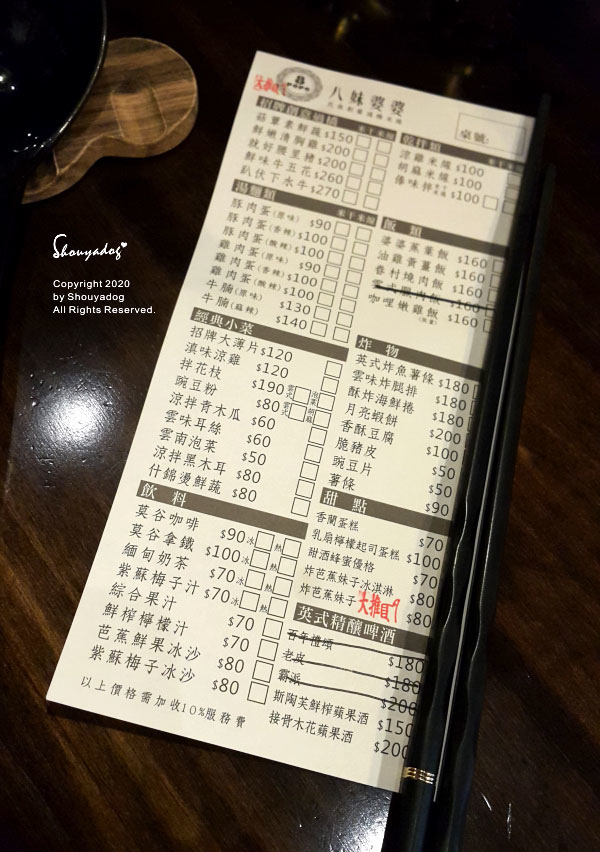 大推
8
POPO
八妹婆婆
桌號:
招牌創意過橋
米干 米線
菇蕈素鮮蔬 $150
鮮嫩清胸雞 $200
就好腰里豬 $200
鮮味牛五花 $260
趴伏下水牛 $270
乾拌類
米干 米線
涼雞米線 $100
胡麻米線 $100
傣味拌 $100
湯麵類
米干 米線
豚肉蛋(原味) $90
豚肉蛋(香辣) $100
豚肉蛋(酸辣) $100
雞肉蛋(原味) $90
雞肉蛋(香辣) $100
雞肉蛋(酸辣) $100
牛腩(原味) $130
牛腩(麻辣) $140
飯類
婆婆蒸菓飯 $160
油雞黃薑飯 $160
眷村燒肉飯 $160
$160
咖哩嫩雞飯 $160
(微量)
經典小菜
招牌大薄片 $120
滇味涼雞 $120
拌花枝 $190
豌豆粉 $80
涼拌青木瓜 $60
雲味耳絲 $60
雲南泡菜 $50
涼拌黑木耳 $80
什錦燙鮮蔬 $80
炸物
英式炸魚薯條 $180
雲味炸腿排 $180
酥炸海鮮捲 $180
月亮蝦餅 $200
香酥豆腐 $100
脆豬皮 $50
豌豆片 $50
薯條 $90
飲料
莫谷咖啡 $90 冰 熱
莫谷拿鐵 $100 冰 熱
緬甸奶茶 $70 冰 熱
紫蘇梅子汁 $70 冰 熱
綜合果汁 $70
鮮榨檸檬汁 $70
芭蕉鮮果冰沙 $80
紫蘇梅子冰沙 $80
甜點
香蘭蛋糕 $70
乳扇檸檬起司蛋糕 $100
甜酒蜂蜜優格 $70
炸芭蕉妹子冰淇淋 $80
炸芭蕉妹子 大推 $80
英式精釀啤酒
百年禮頌 $180
老皮 $180
霸派 $200
斯陶芙鮮榨蘋果酒 $150
接骨木花蘋果酒 $200
以上價格需加收10%服務費
Shouyadog
Copyright 2020
by Shouyadog
All Rights Reserved.